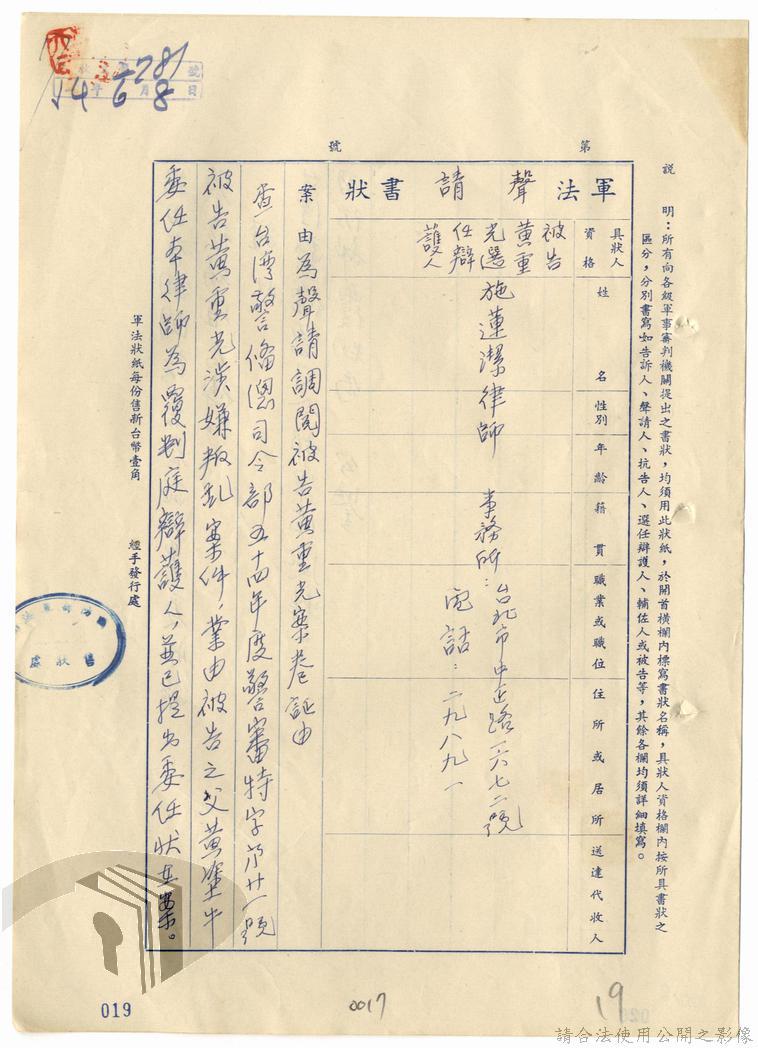 說　明：所有向各級軍事審判機關提出之書狀，均須用此狀紙，於開首橫欄內標寫書狀名稱，具狀人資格欄內按所具書狀之
區分，分別書寫如告訴人、聲請人、抗告人、選任辯護人、輔佐人或被告等，其餘各欄均須詳細填寫。
第　號
軍法聲請書狀
具狀人
資格
姓名
性別
年齡
籍貫
職業或職位
住所或居所
送達代收人
被告
黃重
光選
任辯
護人
施蓮潔律師　事務所：台北市中正路一六七二號
電話：二九八九一
案由為聲請調閱被告黃重光案卷証由
查台湾警俻總司令部五十四年度警審特字第廿一號
被告黃重光涉嫌叛乱案件，業由被告之父黃塗牛
委任本律師為覆判庭辯護人，並已提出委任狀在案。
軍法狀紙每份售新台幣壹角　經手發行處
售狀處
號
54年6月8日
019
0017
19
請合法使用公開之影像